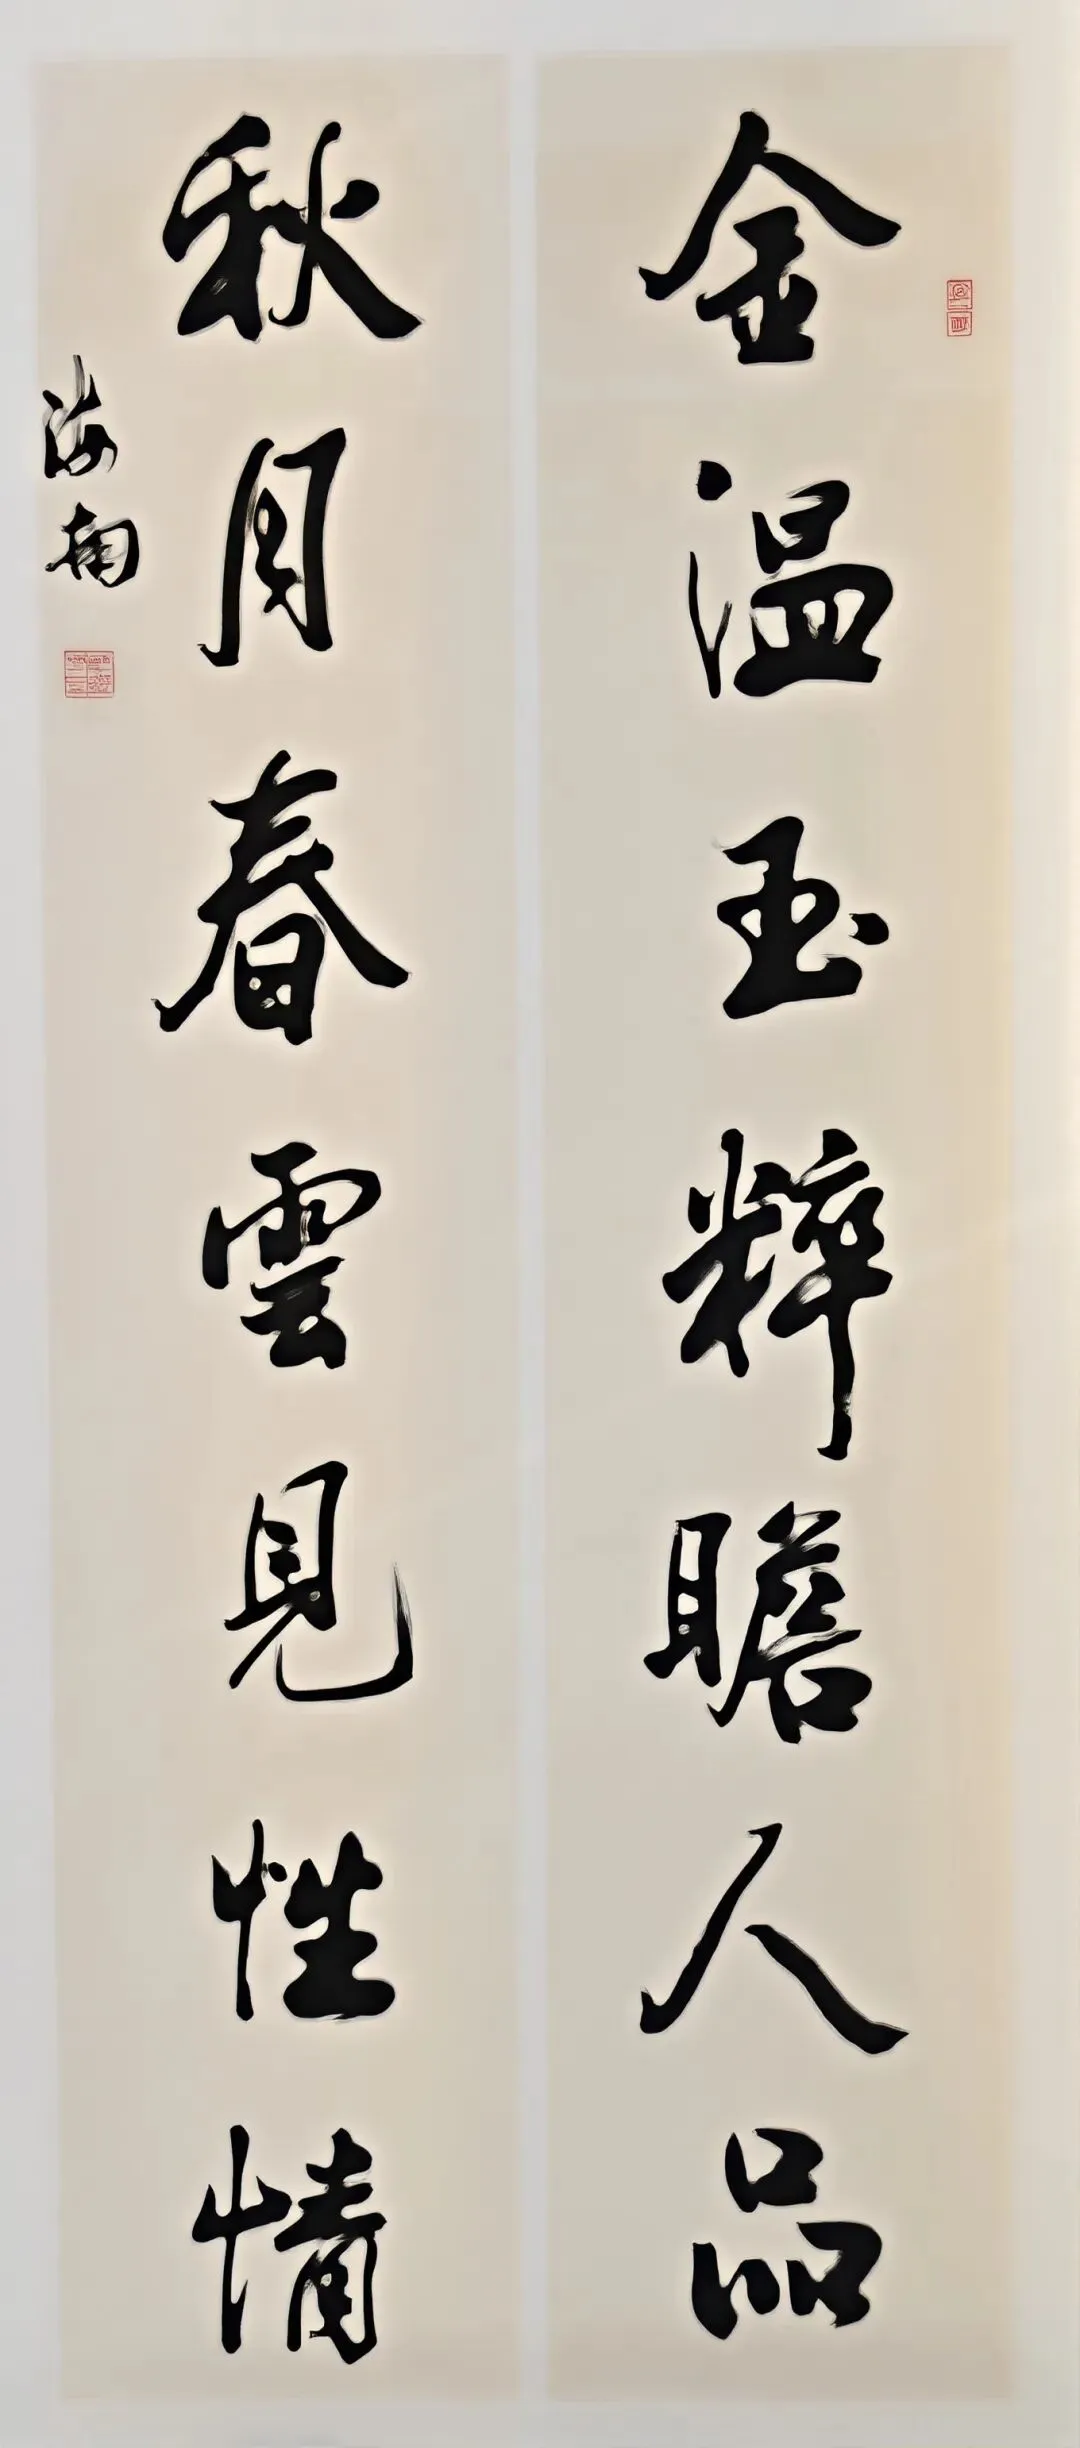 金温玉粹瞻人品
秋月春雲見性情